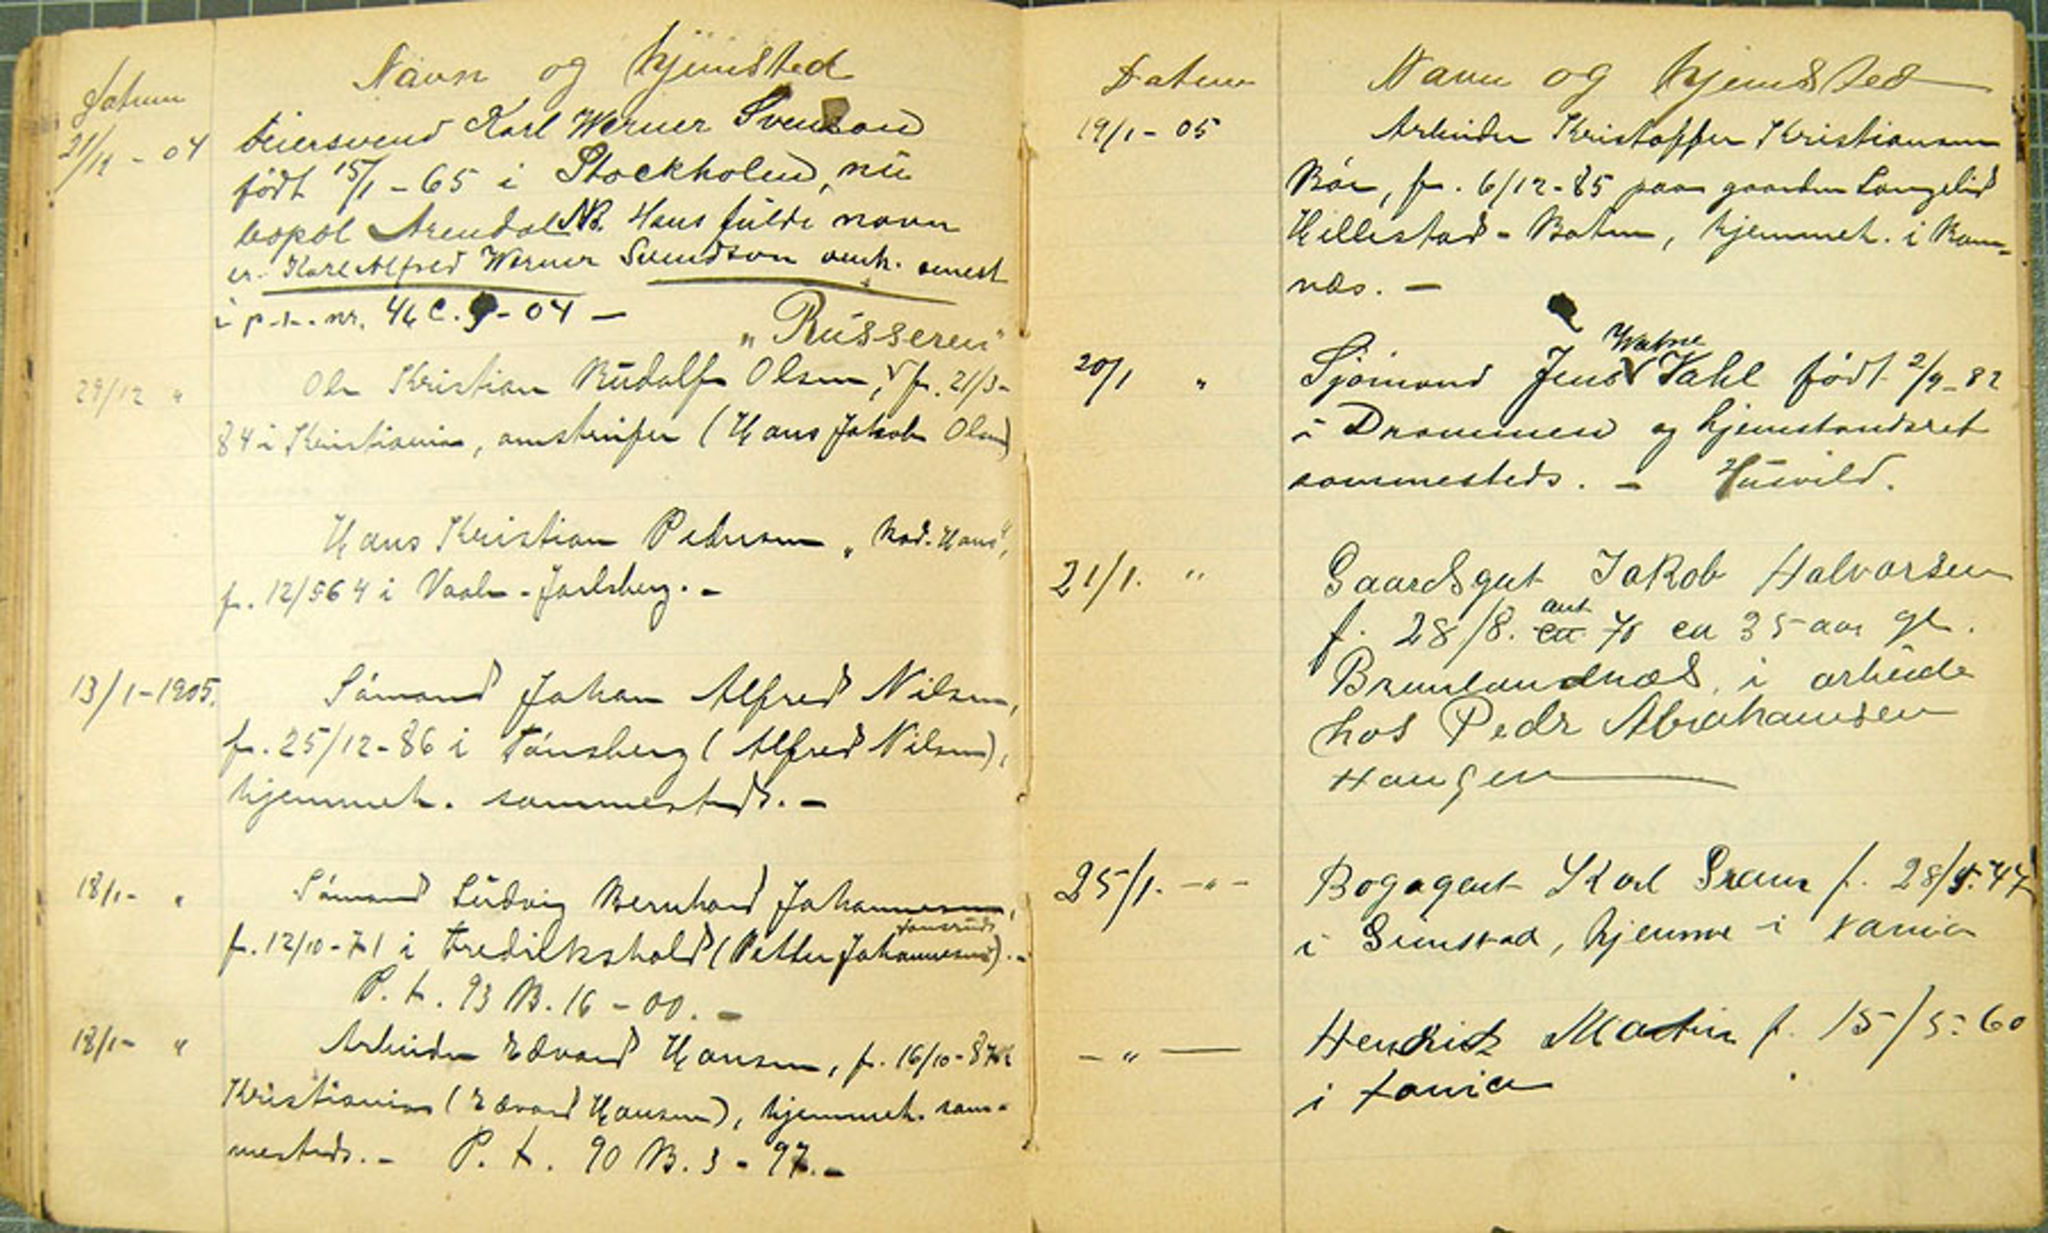 Datum Navn og hjemsted
21/12 - 04 Feiersvend Karl Werner Svenson
født 15/1 - 65 i Stockholm, nu
bopæl Arendal NB. Hans fulde navn
er Karl Alfred Werner Svendson omh. senest
i p.t. nr. 46 C. 9 - 04 —
"Russeren"
29/12 " Ole Kristian Rudolf Olsen, f. 21/3-
84 i Kristiania, omstreifer (Hans Jakob Olsen)
Hans Kristian Pedersen "Rød-Hans",
f. 12/5 64 i Vaale - Jarlsberg. -
13/1 - 1905. Sømand Johan Alfred Nilsen,
f. 25/12 - 86 i Tønsberg (Alfred Nilsen),
hjemmeh. sammesteds. -
18/1 - " Sømand Ludvig Bernhard Johannesen,
f. 12/10 - 71 i Fredrikshald (Petter Johannesen). -
P. t. 93 B. 16 - 00. -
18/1 - " Arbeider Edvard Hansen, f. 16/10 - 87 i
Kristiania (Edvard Hansen), hjemmeh. sam-
mesteds. - P. t. 90 B. 3 - 97. -
Datum Navn og hjemsted
19/1 - 05 Arbeider Kristoffer Kristiansen
Bøe, f. 6/12 - 85 paa gaarden Langelid
Hillestad - Botne, hjemmeh. i Ram-
næs. -
Watne
20/1 " Sjømand Jens Vahl født 2/9 - 82
i Drammen og hjemstandsret
sammesteds. - Husvild.
21/1. " Gaardsgut Jakob Halvorsen
ant
f. 28/8. ca 70 ca 35 aar gl.
Brunlandnæs, i arbeide
hos Peder Abrahamsen
Haugen
25/1. - " - Bogagent Karl Gram f. 28/5. 47
i Grimstad, hjemme i Xania
- " - Hendrik Martin f. 15/5. 60
i Xania